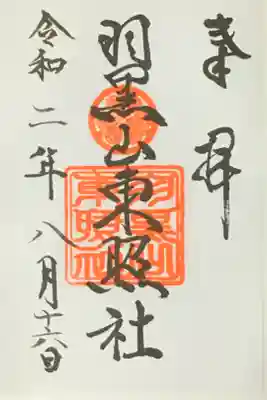 奉拝
羽黒山東照社
令和二年八月十六日